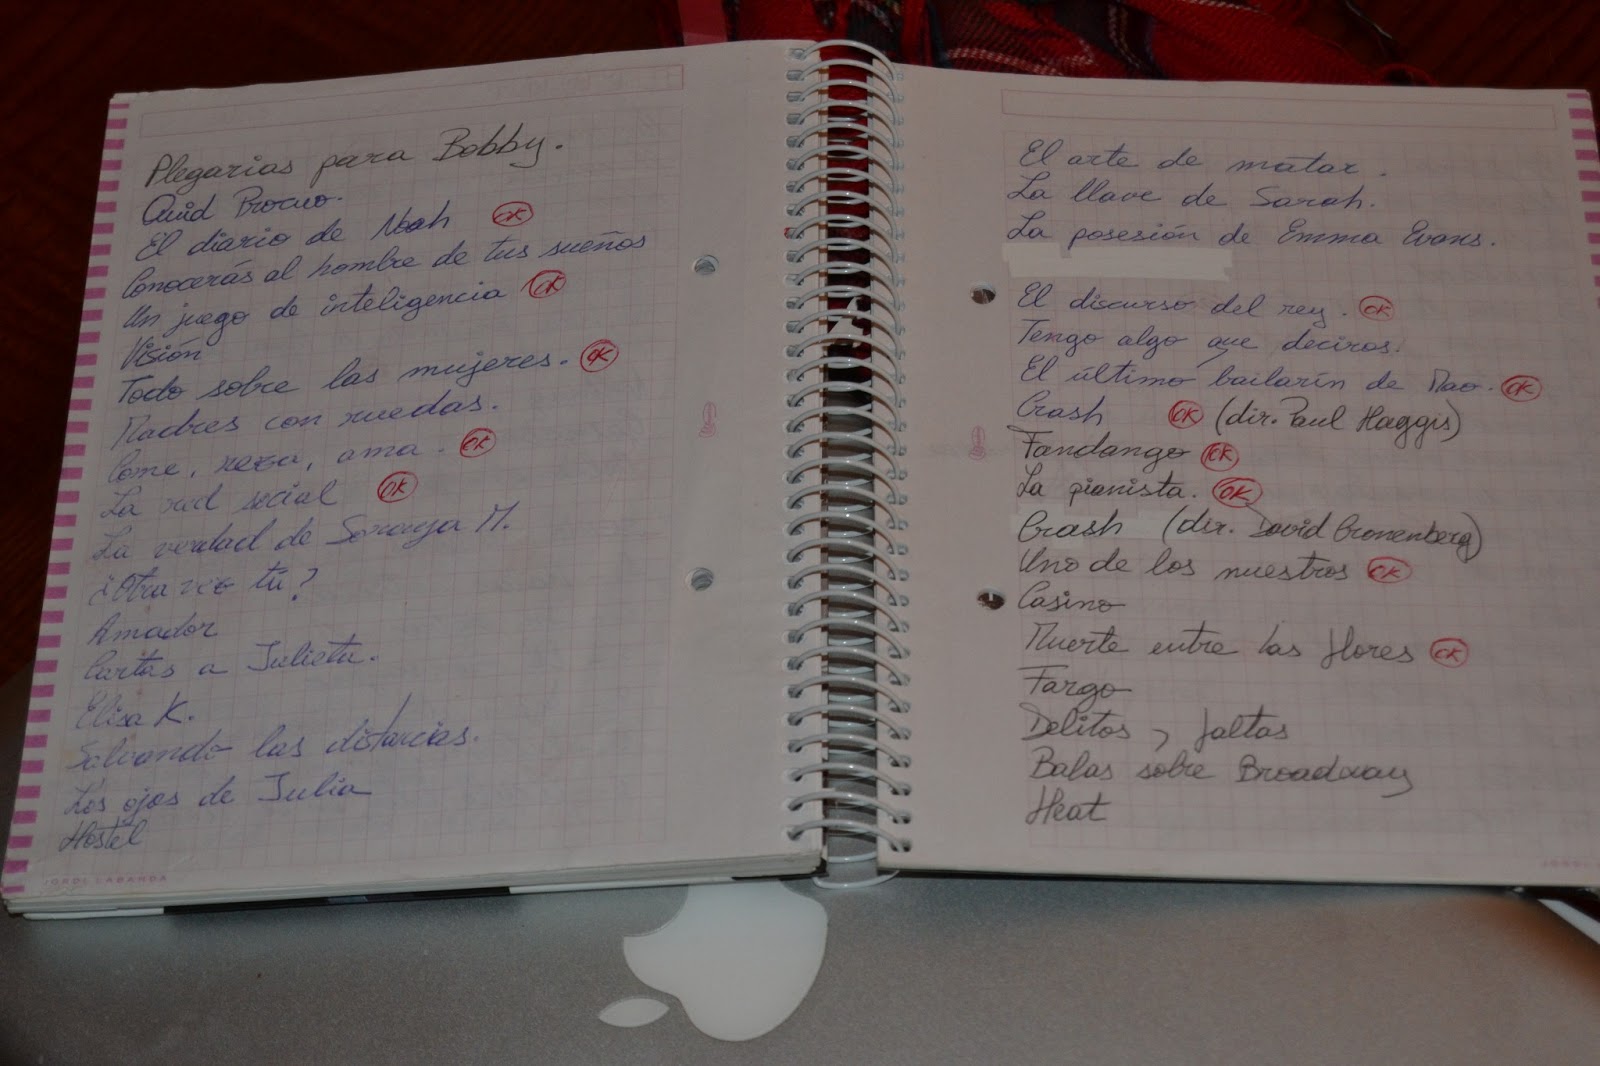 Plegarias para Bobby.
Quid Procuo.
El diario de Noah OK
Conocerás al hombre de tus sueños
Un juego de inteligencia OK
Visión
Todo sobre las mujeres. OK
Madres con ruedas.
Come, reza, ama. OK
La red social OK
La verdad de Soraya M.
¿Otra vez tú?
Amador
Cartas a Julieta.
Elisa K.
Salvando las distancias.
Los ojos de Julia
Hostel
JORDI LABANDA
El arte de matar.
La llave de Sarah.
La posesión de Emma Evans.
El discurso del rey. OK
Tengo algo que deciros.
El último bailarín de Mao. OK
Crash OK (dir. Paul Haggis)
Fandango OK
La pianista. OK
Crash (dir. David Cronenberg)
Uno de los nuestros OK
Casino
Muerte entre las flores OK
Fargo
Delitos y faltas
Balas sobre Broadway
Heat